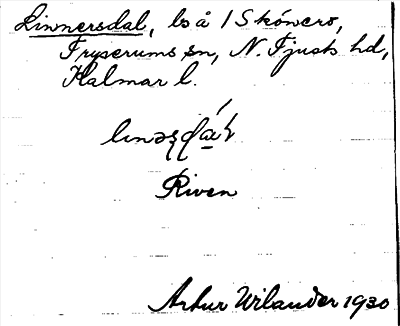 Linnersdal, ls å 1 Skönero,
Fryserums sn, N. Tjusts hd,
Kalmar l.
Riven
Artur Wilander 1930